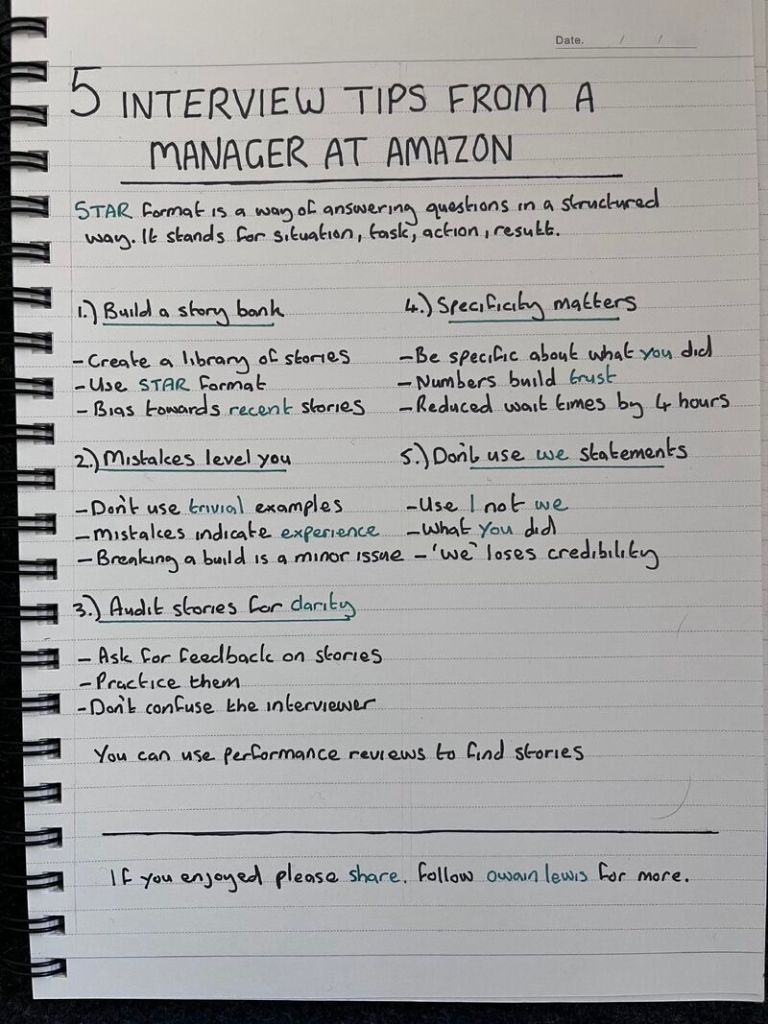 Date. / /
5 INTERVIEW TIPS FROM A
MANAGER AT AMAZON
STAR format is a way of answering questions in a structured
way. It stands for situation, task, action, result.
1.) Build a story bank
- Create a library of stories
- Use STAR format
- Bias towards recent stories
2.) Mistakes level you
- Don't use trivial examples
- Mistakes indicate experience
- Breaking a build is a minor issue
3.) Audit stories for clarity
- Ask for feedback on stories
- Practice them
- Don't confuse the interviewer
4.) Specificity matters
- Be specific about what you did
- Numbers build trust
- Reduced wait times by 4 hours
5.) Don't use we statements
- Use I not we
- What you did
- 'we' loses credibility
You can use performance reviews to find stories
If you enjoyed please share. Follow owain lewis for more.